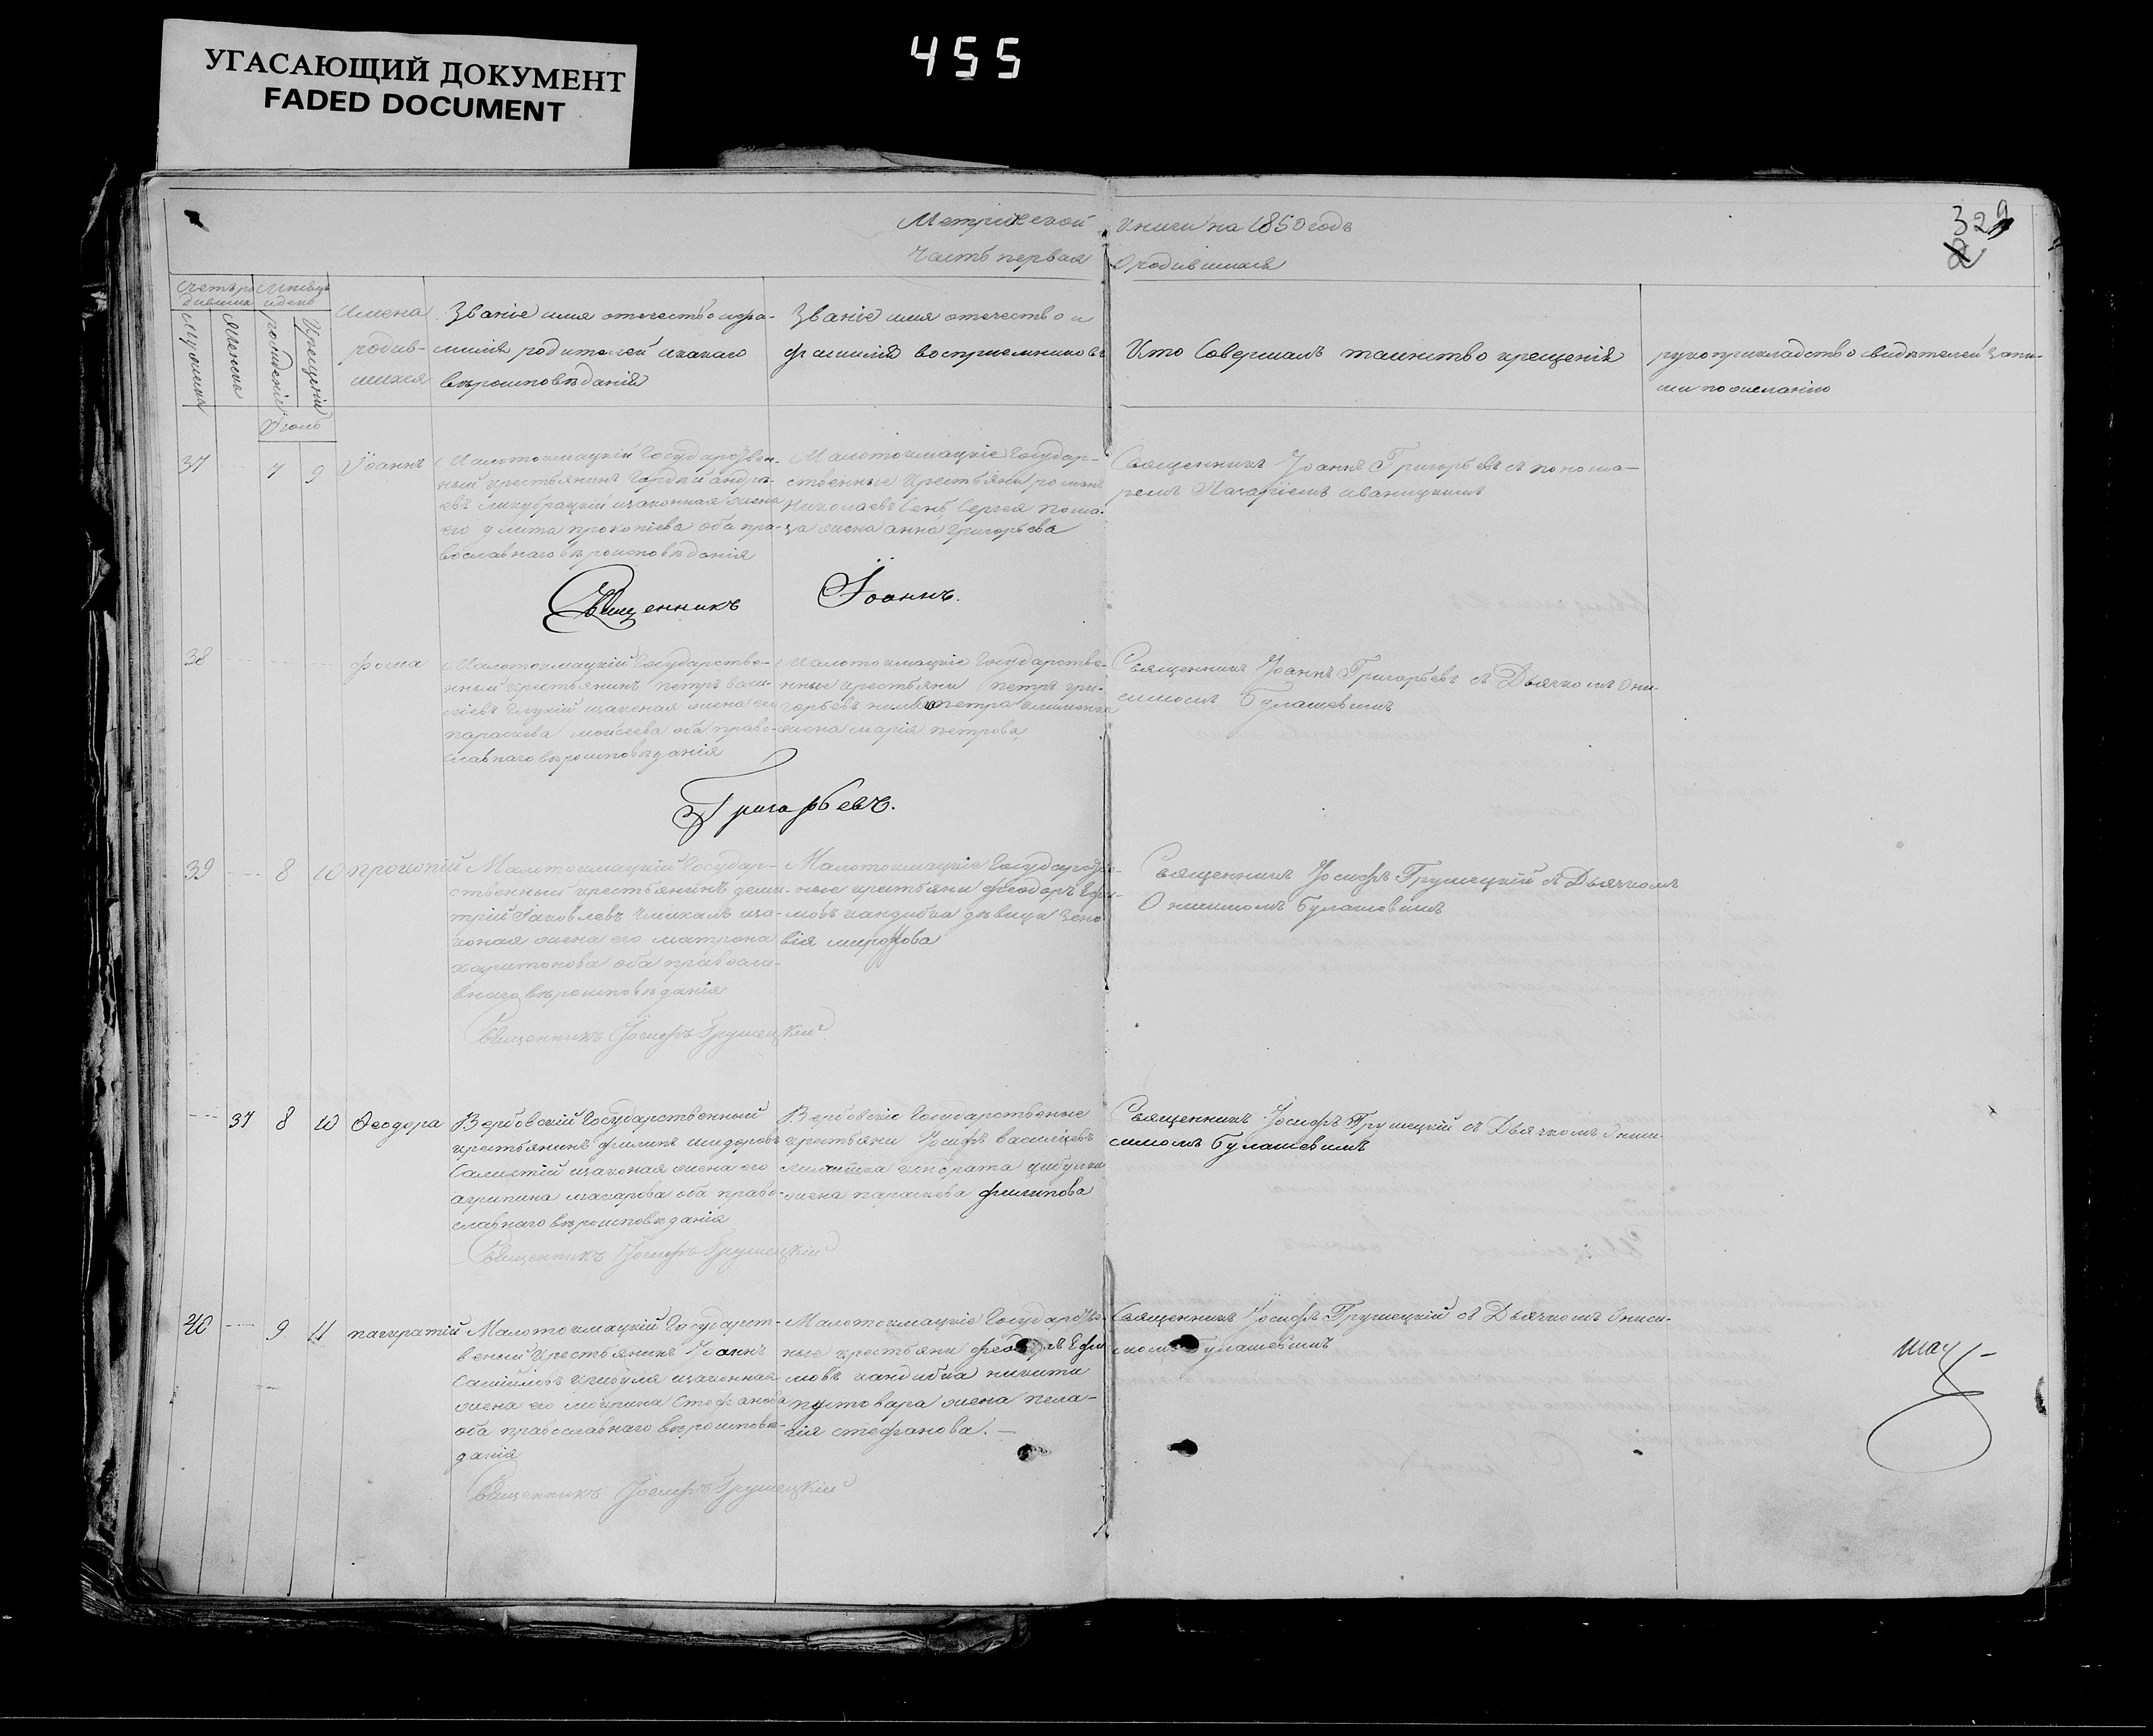 УГАСАЮЩИЙ ДОКУМЕНТ
FADED DOCUMENT
455
Метрической книги на 1850 годъ
Часть первая о родившихся
329
Счетъ ро- Мѣсяцъ
дившихъ и день
Мужеска
Женска
рожденіе
Крещеніе
Имена
родив-
шихся
Званіе имя отечество и фа-
милія родителей и какого
вѣроисповѣданія
Званіе имя отечество и
фамилія восприемниковъ
Кто Совершалъ таинство крещенія
рукоприкладство свидѣтелей запи-
си по желанію
Июль
37 7 9 Іоаннъ
Малотокмацкій Государствен-
ный крестьянинъ Гордѣй андре-
евъ и законная жена
его улита прокопіева оба пра-
вославнаго вѣроисповѣданія
Малотокмацкіе Государ-
ственные Крестьяни романъ
Николаевъ Сергея
жена анна григорьева
Священникъ Іоаннъ Григорьевъ съ понома-
ремъ Иваницкимъ
Священникъ Іоаннъ.
38 фома
Малотокмацкій Государстве-
нный крестьянинъ петръ васи-
ліевъ и законая жена его
параскева мойсеева оба право-
славнаго вѣроисповѣданія
Малотокмацкіе Государстве-
нные крестьяни петръ гри-
горьевъ петра
жена марія петрова
Священникъ Іоаннъ Григорьевъ съ Дьячкомъ Они-
симомъ Булашевимъ
Григорьевъ.
39 8 10 прокопій
Малотокмацкій Государ-
ственный крестьянинъ дими-
трій Іаковлевъ и за-
коная жена его матрона
харитонова оба правосла-
внаго вѣроисповѣданія
Малотокмацкіе Государстве-
ные крестьяни феодоръ Ефи-
мовъ кандибка дѣвица Зено-
вія миронова
Священникъ Іосифъ Грушецкій съ Дьячкомъ
Онисимомъ Булашевимъ
Священникъ Іосифъ Грушецкій
37 8 10 Феодора
Вербовскій Государственный
крестьянинъ филипъ исидоровъ
и законая жена его
агрипина макарова оба право-
славнаго вѣроисповѣданія
Вербовскіе Государственые
крестьяни Іосифъ василіевъ
кондрата цибулки
жена параскева филипова
Священникъ Іосифъ Грушецкій съ Дьячкомъ Они-
симомъ Булашевимъ
Священникъ Іосифъ Грушецкій
40 9 11 панкратій
Малотокмацкій Государст-
веный Крестьянинъ Іоаннъ
Самійловъ и законная
жена его Стефанова
оба православнаго вѣроисповѣ-
данія
Малотокмацкіе Государстве-
ные крестьяни феодоръ Ефи-
мовъ кандибка никити
пустовара жена пела-
гія стефанова.
Священникъ Іосифъ Грушецкій съ Дьячкомъ Ониси-
момъ Булашевимъ
Священникъ Іосифъ Грушецкій